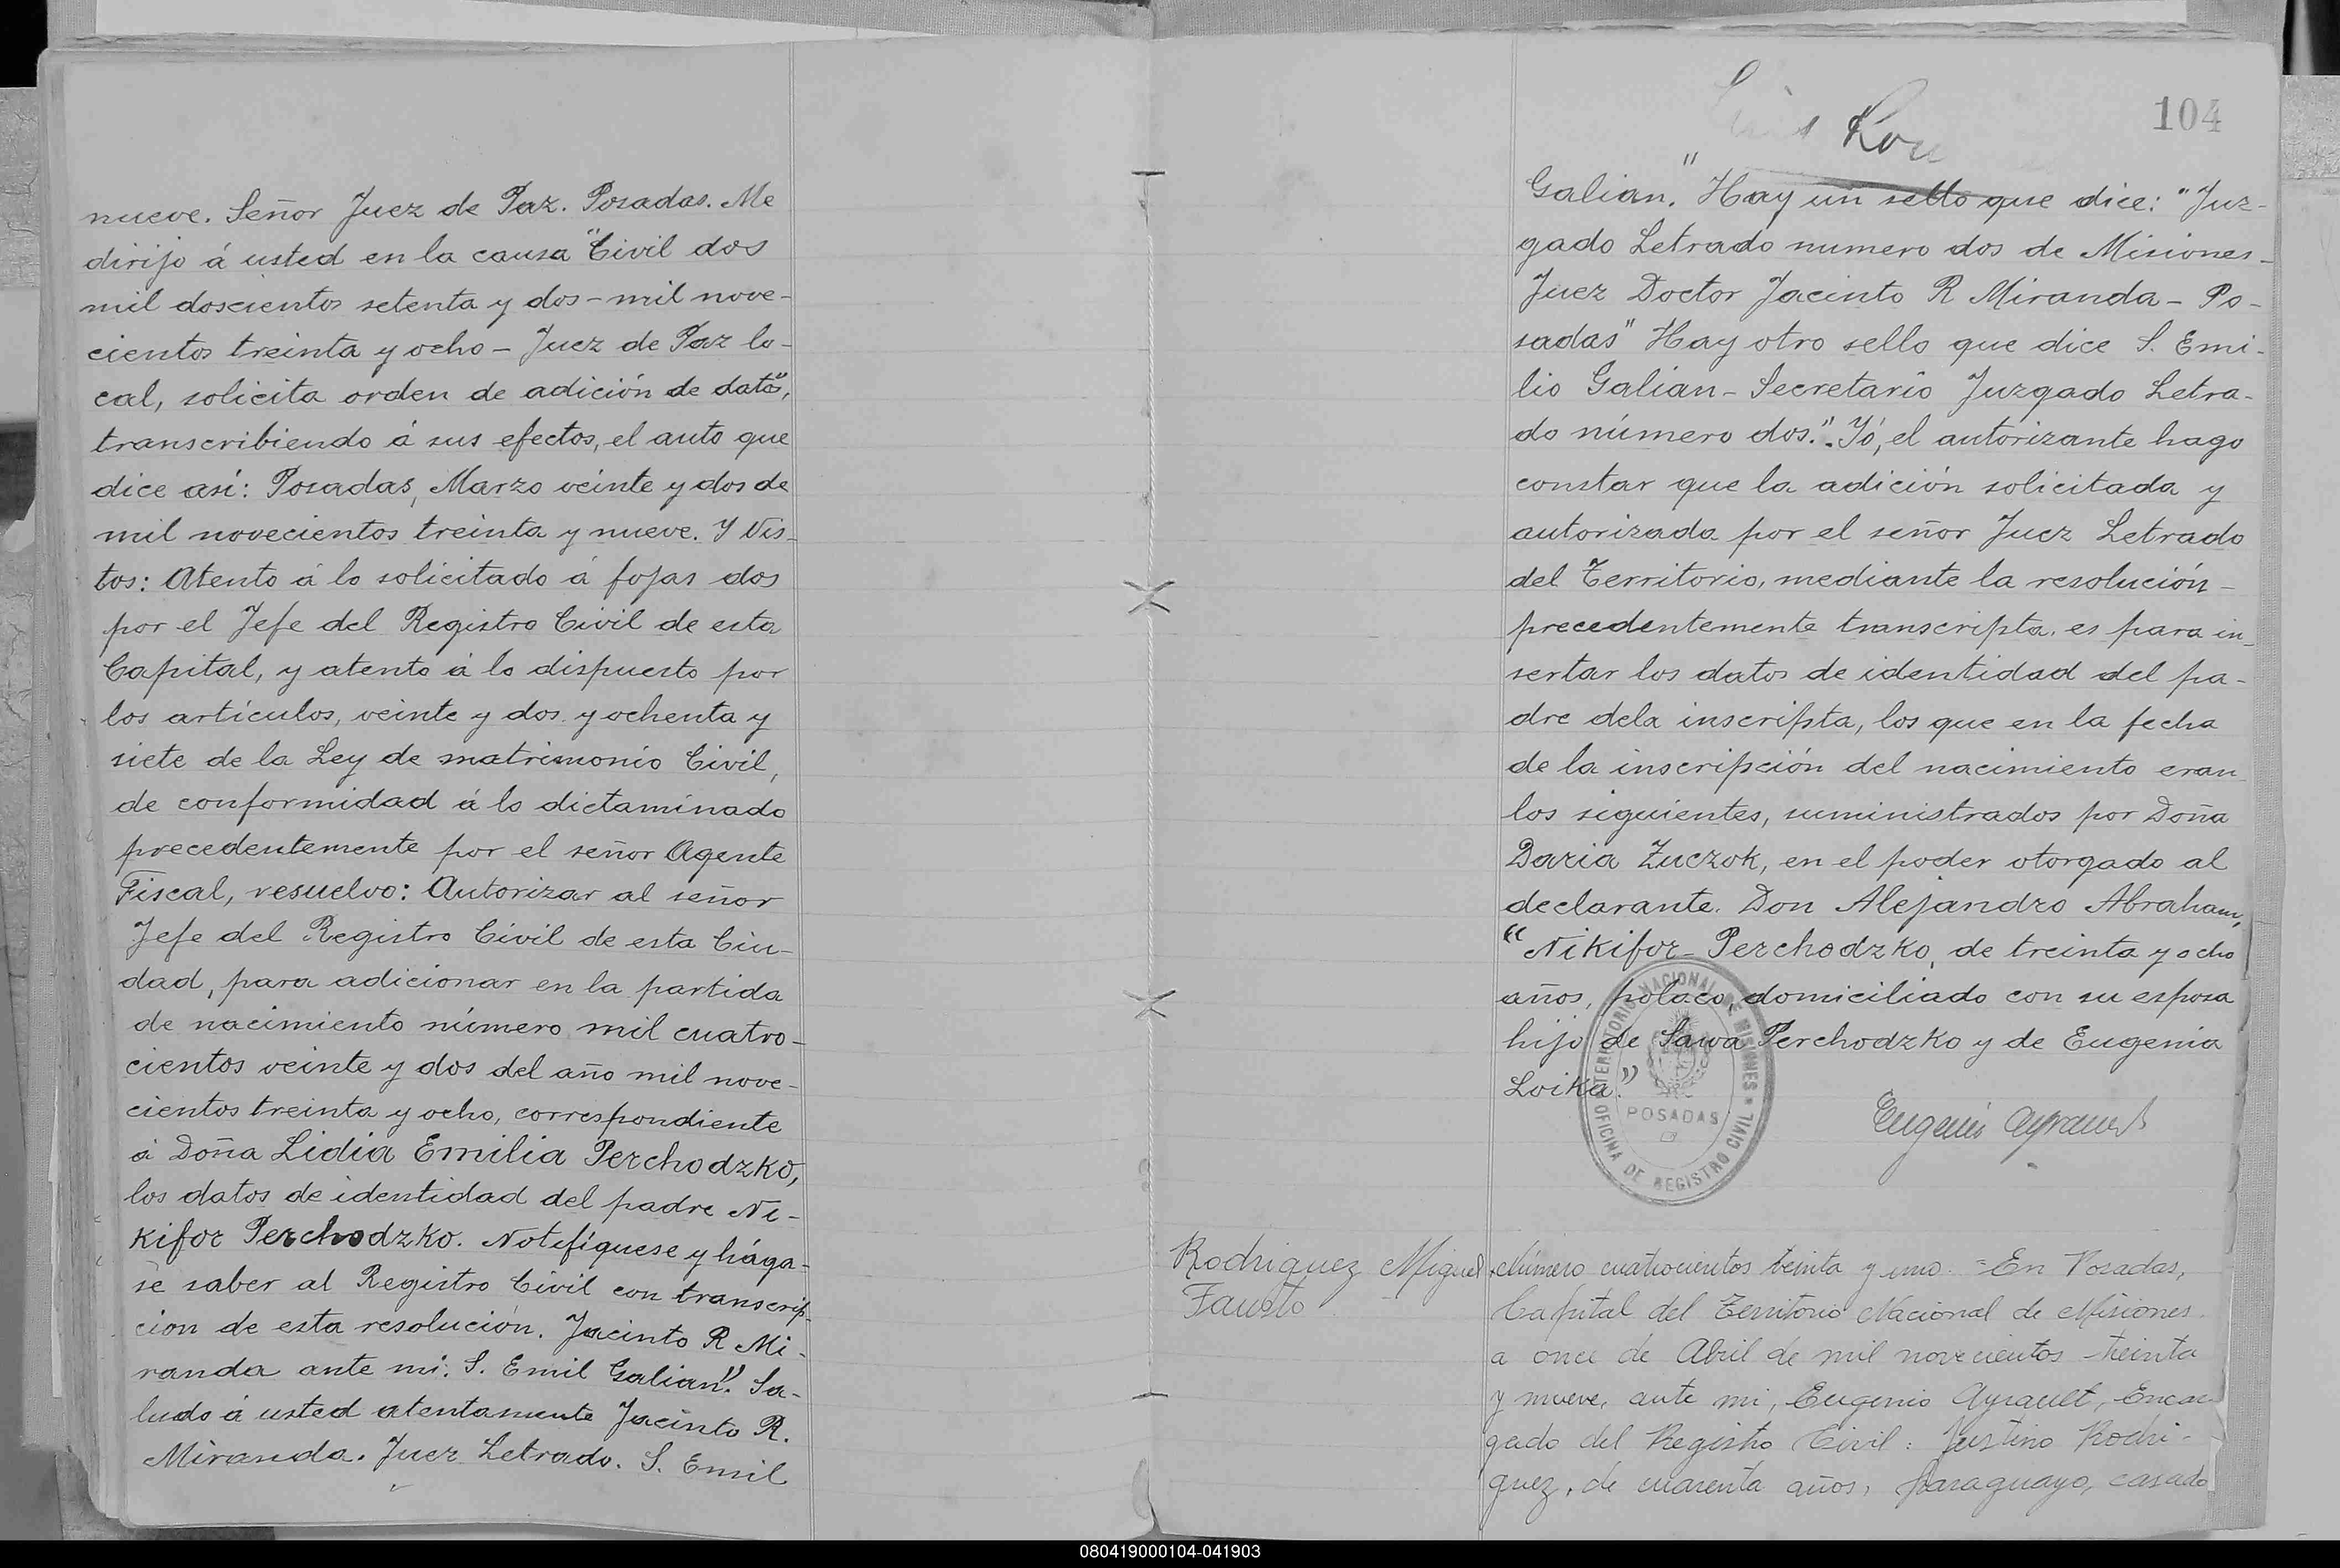 nueve. Señor Juez de Paz. Posadas. Me
dirijo á usted en la causa "Civil dos
mil doscientos setenta y dos - mil nove-
cientos treinta y ocho - Juez de Paz lo-
cal, solicita orden de adición de datos",
transcribiendo á sus efectos, el auto que
dice así: Posadas, Marzo veinte y dos de
mil novecientos treinta y nueve. Y Vis-
tos: Atento á lo solicitado á fojas dos
por el Jefe del Registro Civil de esta
Capital, y atento á lo dispuesto por
los artículos, veinte y dos y ochenta y
siete de la Ley de matrimonio Civil,
de conformidad á lo dictaminado
precedentemente por el señor Agente
Fiscal, resuelvo: Autorizar al señor
Jefe del Registro Civil de esta Ciu-
dad, para adicionar en la partida
de nacimiento número mil cuatro-
cientos veinte y dos del año mil nove-
cientos treinta y ocho, correspondiente
á Doña Lidia Emilia Perchodzko,
los datos de identidad del padre Ni-
kifor Perchodzko. Notifíquese y hága-
se saber al Registro Civil con transcrip-
cion de esta resolución. Jacinto R Mi-
randa ante mi: S. Emil Galian". Sa-
ludo á usted atentamente Jacinto R.
Miranda. Juez Letrado. S. Emil
104
Galian." Hay un sello que dice: "Juz-
gado Letrado numero dos de Misiones-
Juez Doctor Jacinto R Miranda - Po-
sadas" Hay otro sello que dice S. Emi-
lio Galian - Secretario Juzgado Letra-
do número dos.". Yó, el autorizante hago
constar que la adición solicitada y
autorizada por el señor Juez Letrado
del Territorio, mediante la resolución -
precedentemente transcripta. es para in-
sertar los datos de identidad del pa-
dre dela inscripta, los que en la fecha
de la inscripción del nacimiento eran
los siguientes, suministrados por Doña
Daria Zuczok, en el poder otorgado al
declarante. Don Alejandro Abraham,
"Nikifor- Perchodzko, de treinta y ocho
años, polaco, domiciliado con su esposa
hijo de Sawa Perchodzko y de Eugenia
Loika."
TERRITORIO NACIONAL DE MISIONES
POSADAS
OFICINA DE REGISTRO CIVIL
Eugenio Ayrault
Rodriguez Miguel
Fausto
Número cuatrocientos treinta y uno. = En Posadas,
Capital del Territorio Nacional de Misiones
a once de Abril de mil novecientos treinta
y nueve, ante mi, Eugenio Ayrault, Encar-
gado del Registro Civil: Justino Rodri-
guez, de cuarenta años, paraguayo, casado
080419000104-041903